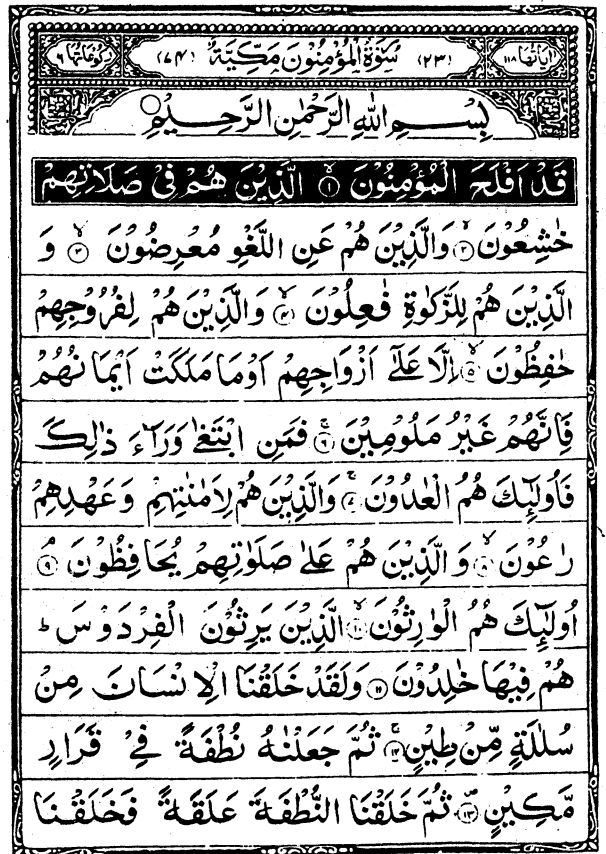 اٰيَاتُهَا ١١٨ (٢٣) سُوْرَةُ الْمُؤْمِنُوْنَ مَكِّيَّةٌ (٧٤) رُكُوْعَاتُهَا ٦
بِسْمِ اللّٰهِ الرَّحْمٰنِ الرَّحِيْمِ
قَدْ اَفْلَحَ الْمُؤْمِنُوْنَ ۙ‏﴿١﴾ الَّذِيْنَ هُمْ فِيْ صَلَاتِهِمْ
خٰشِعُوْنَ ۙ‏﴿٢﴾ وَالَّذِيْنَ هُمْ عَنِ اللَّغْوِ مُعْرِضُوْنَ ۙ‏﴿٣﴾ وَ
الَّذِيْنَ هُمْ لِلزَّكٰوةِ فٰعِلُوْنَ ۙ‏﴿٤﴾ وَالَّذِيْنَ هُمْ لِفُرُوْجِهِمْ
حٰفِظُوْنَ ۙ‏﴿٥﴾ اِلَّا عَلٰٓى اَزْوَاجِهِمْ اَوْ مَا مَلَكَتْ اَيْمَانُهُمْ
فَاِنَّهُمْ غَيْرُ مَلُوْمِيْنَ ۚ‏﴿٦﴾ فَمَنِ ابْتَغٰى وَرَآءَ ذٰلِكَ
فَاُولٰٓئِكَ هُمُ الْعٰدُوْنَ ۚ‏﴿٧﴾ وَالَّذِيْنَ هُمْ لِاَمٰنٰتِهِمْ وَعَهْدِهِمْ
رٰعُوْنَ ۙ‏﴿٨﴾ وَالَّذِيْنَ هُمْ عَلٰى صَلَوٰتِهِمْ يُحَافِظُوْنَ ۘ‏﴿٩﴾
اُولٰٓئِكَ هُمُ الْوٰرِثُوْنَ ۙ‏﴿١٠﴾ الَّذِيْنَ يَرِثُوْنَ الْفِرْدَوْسَ ط
هُمْ فِيْهَا خٰلِدُوْنَ ﴿١١﴾ وَلَقَدْ خَلَقْنَا الْاِنْسَانَ مِنْ
سُلٰلَةٍ مِّنْ طِيْنٍ ۚ‏﴿١٢﴾ ثُمَّ جَعَلْنٰهُ نُطْفَةً فِيْ قَرَارٍ
مَّكِيْنٍ ۪‏﴿١٣﴾ ثُمَّ خَلَقْنَا النُّطْفَةَ عَلَقَةً فَخَلَقْنَا